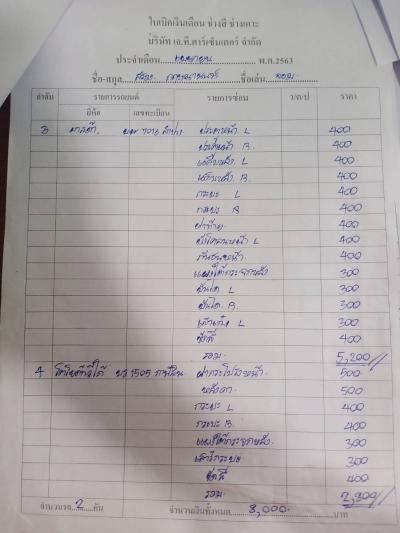 ใบเบิกเงินเดือน ช่างสี ช่างเคาะ
บริษัท เจ.ที.คาร์เซ็นเตอร์ จำกัด
ประจำเดือน พ.ศ.2563
ชื่อ-สกุล ชื่อเล่น
ลำดับ รายการรถยนต์ รายการซ่อม ว/ด/ป ราคา
ยี่ห้อ เลขทะเบียน
3 7016 ลำปาง ประตูหน้า L 400
ประตูหน้า R. 400
L 400
R 400
กระบะ L 400
กระบะ R 400
ฝาท้าย 400
บังโคลนหน้า L 400
กันชนหน้า 400
300
บันได L 300
บันได R. 300
L 300
ขัดสี 400
รวม 5,200
4 1505 ฝากระโปรงหน้า 500
หลังคา 500
กระบะ L 400
กระบะ R. 400
300
300
ขัดสี 400
รวม 2,800
จำนวนรถ 2 คัน จำนวนเงินทั้งหมด 8,000 บาท